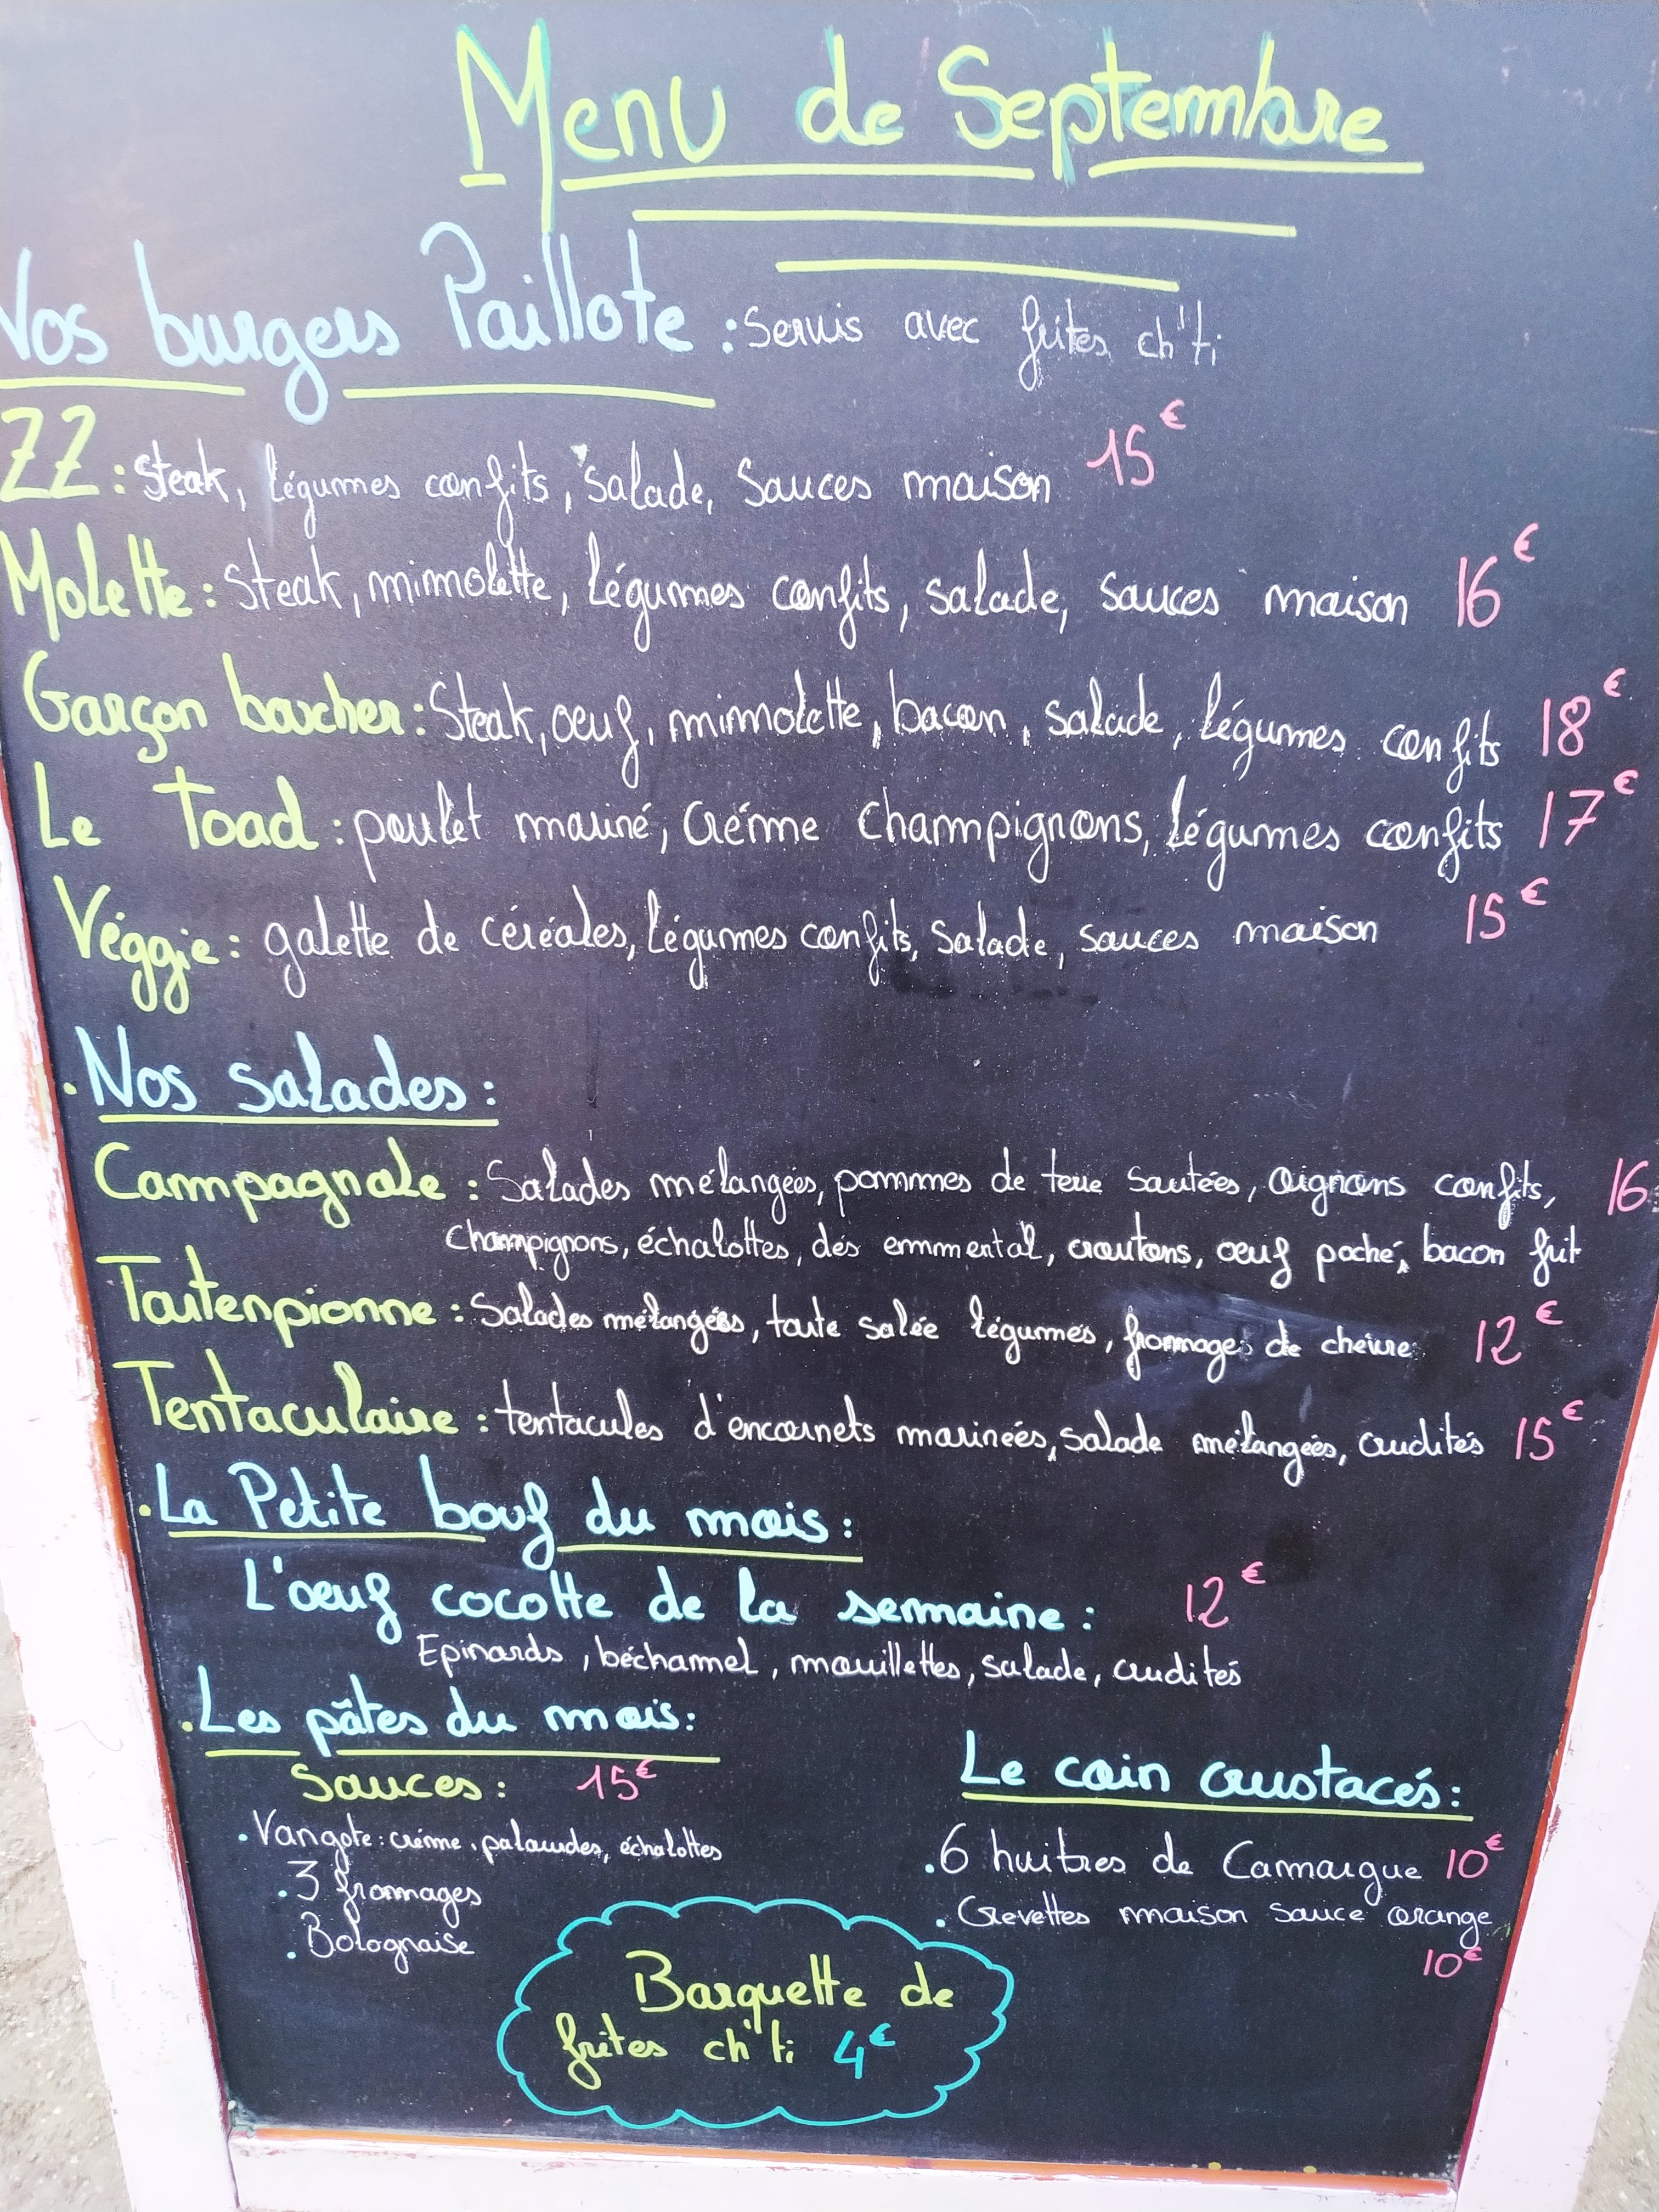 Menu de Septembre
Nos burgers Paillote : Servis avec frites ch'ti
ZZ : Steak, légumes confits, salade, Sauces maison 15€
Molette : Steak, mimolette, légumes confits, salade, sauces maison 16€
Garçon boucher : Steak, oeuf, mimolette, bacon, salade, légumes confits 18€
Le Toad : poulet mariné, créme champignons, légumes confits 17€
Véggie : galette de céréales, légumes confits, salade, sauces maison 15€
. Nos salades :
Campagnale : Salades mélangées, pommes de terre Sautées, oignons confits, 16
Champignons, échalottes, dés emmental, croutons, oeuf poché, bacon frit
Tartenpionne : Salades mélangées, tarte salée légumes, fromages de chévre 12€
Tentaculaire : tentacules d'encornets marinées, salade mélangées, crudités 15€
. La Petite bouf du mois :
L'oeuf cocotte de la semaine : 12€
Epinards, béchamel, mouillettes, salade, crudités
. Les pâtes du mois :
Sauces : 15€
. Vangote : créme, palourdes, échalottes
. 3 fromages
. Bolognaise
Le coin crustacés :
. 6 huitres de Camargue 10€
. Crevettes maison Sauce orange
10€
Barquette de
frites ch'ti 4€